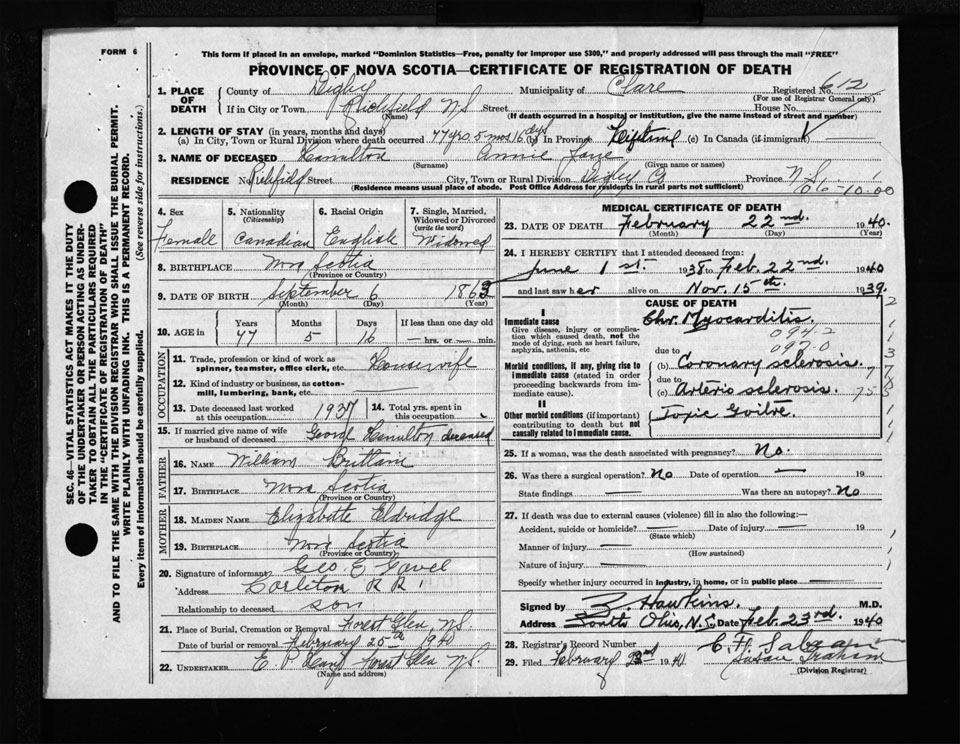 FORM 6
This form if placed in an envelope, marked "Dominion Statistics—Free, penalty for improper use $300," and properly addressed will pass through the mail "FREE"
PROVINCE OF NOVA SCOTIA—CERTIFICATE OF REGISTRATION OF DEATH
1. PLACE OF DEATH County of Digby Municipality of Clare Registered No. 612
(For use of Registrar General only)
If in City or Town Richfield N.S. Street House No.
(Name) (If death occurred in a hospital or institution, give the name instead of street and number)
2. LENGTH OF STAY (in years, months and days)
(a) In City, Town or Rural Division where death occurred 77 yrs. 5 mos 16 days (b) In Province Lifetime (c) In Canada (if immigrant)
3. NAME OF DECEASED Hamilton Annie Jane
(Surname) (Given name or names)
RESIDENCE No. Richfield Street City, Town or Rural Division Digby Co Province N.S.
(Residence means usual place of abode. Post Office Address for residents in rural parts not sufficient)
06-10.00
4. Sex Female
5. Nationality (Citizenship) Canadian
6. Racial Origin English
7. Single, Married, Widowed or Divorced (write the word) Widowed
8. BIRTHPLACE Nova Scotia
(Province or Country)
9. DATE OF BIRTH September 6 1863
(Month) (Day) (Year)
10. AGE in Years Months Days If less than one day old
77 5 16 — hrs. or — min.
OCCUPATION
11. Trade, profession or kind of work as spinner, teamster, office clerk, etc. Housewife
12. Kind of industry or business, as cotton-mill, lumbering, bank, etc.
13. Date deceased last worked at this occupation 1937
14. Total yrs. spent in this occupation
15. If married give name of wife or husband of deceased George Hamilton deceased
FATHER
16. NAME William Brittain
17. BIRTHPLACE Nova Scotia
(Province or Country)
MOTHER
18. MAIDEN NAME Elizabeth Eldridge
19. BIRTHPLACE Nova Scotia
(Province or Country)
20. Signature of informant Geo. E. Gavel
Address Carleton R R 1
Relationship to deceased son
21. Place of Burial, Cremation or Removal Forest Glen N.S.
Date of burial or removal February 25th 1940
22. UNDERTAKER E. P. Forest Glen N.S.
(Name and address)
MEDICAL CERTIFICATE OF DEATH
23. DATE OF DEATH February 22nd. 1940.
(Month) (Day) (Year)
24. I HEREBY CERTIFY that I attended deceased from:
June 1st. 1938 to Feb. 22nd. 1940
and last saw her alive on Nov. 15th. 1939.
CAUSE OF DEATH
I
Immediate cause
Give disease, injury or complication which caused death, not the mode of dying, such as heart failure, asphyxia, asthenia, etc
Chr. Myocarditis.
094.2
097.0
Morbid conditions, if any, giving rise to immediate cause (stated in order proceeding backwards from immediate cause).
due to
(b) Coronary sclerosis.
due to
(c) Arterio sclerosis.
II
Other morbid conditions (if important) contributing to death but not causally related to immediate cause.
Toxic Goitre
25. If a woman, was the death associated with pregnancy? No.
26. Was there a surgical operation? No Date of operation — 19
State findings — Was there an autopsy? No
27. If death was due to external causes (violence) fill in also the following:—
Accident, suicide or homicide? — Date of injury — 19
(State which)
Manner of injury —
(How sustained)
Nature of injury —
Specify whether injury occurred in industry, in home, or in public place —
Signed by Z. Hawkins. M.D.
Address South Ohio, N.S. Date Feb. 23rd. 1940
28. Registrar's Record Number
29. Filed February 23rd 1940
Susan Graham
(Division Registrar)
SEC. 46—VITAL STATISTICS ACT MAKES IT THE DUTY
OF THE UNDERTAKER OR PERSON ACTING AS UNDER-
TAKER TO OBTAIN ALL THE PARTICULARS REQUIRED
IN THE "CERTIFICATE OF REGISTRATION OF DEATH"
AND TO FILE THE SAME WITH THE DIVISION REGISTRAR WHO SHALL ISSUE THE BURIAL PERMIT.
WRITE PLAINLY WITH UNFADING INK. THIS IS A PERMANENT RECORD.
Every item of information should be carefully supplied. (See reverse side for instructions.)